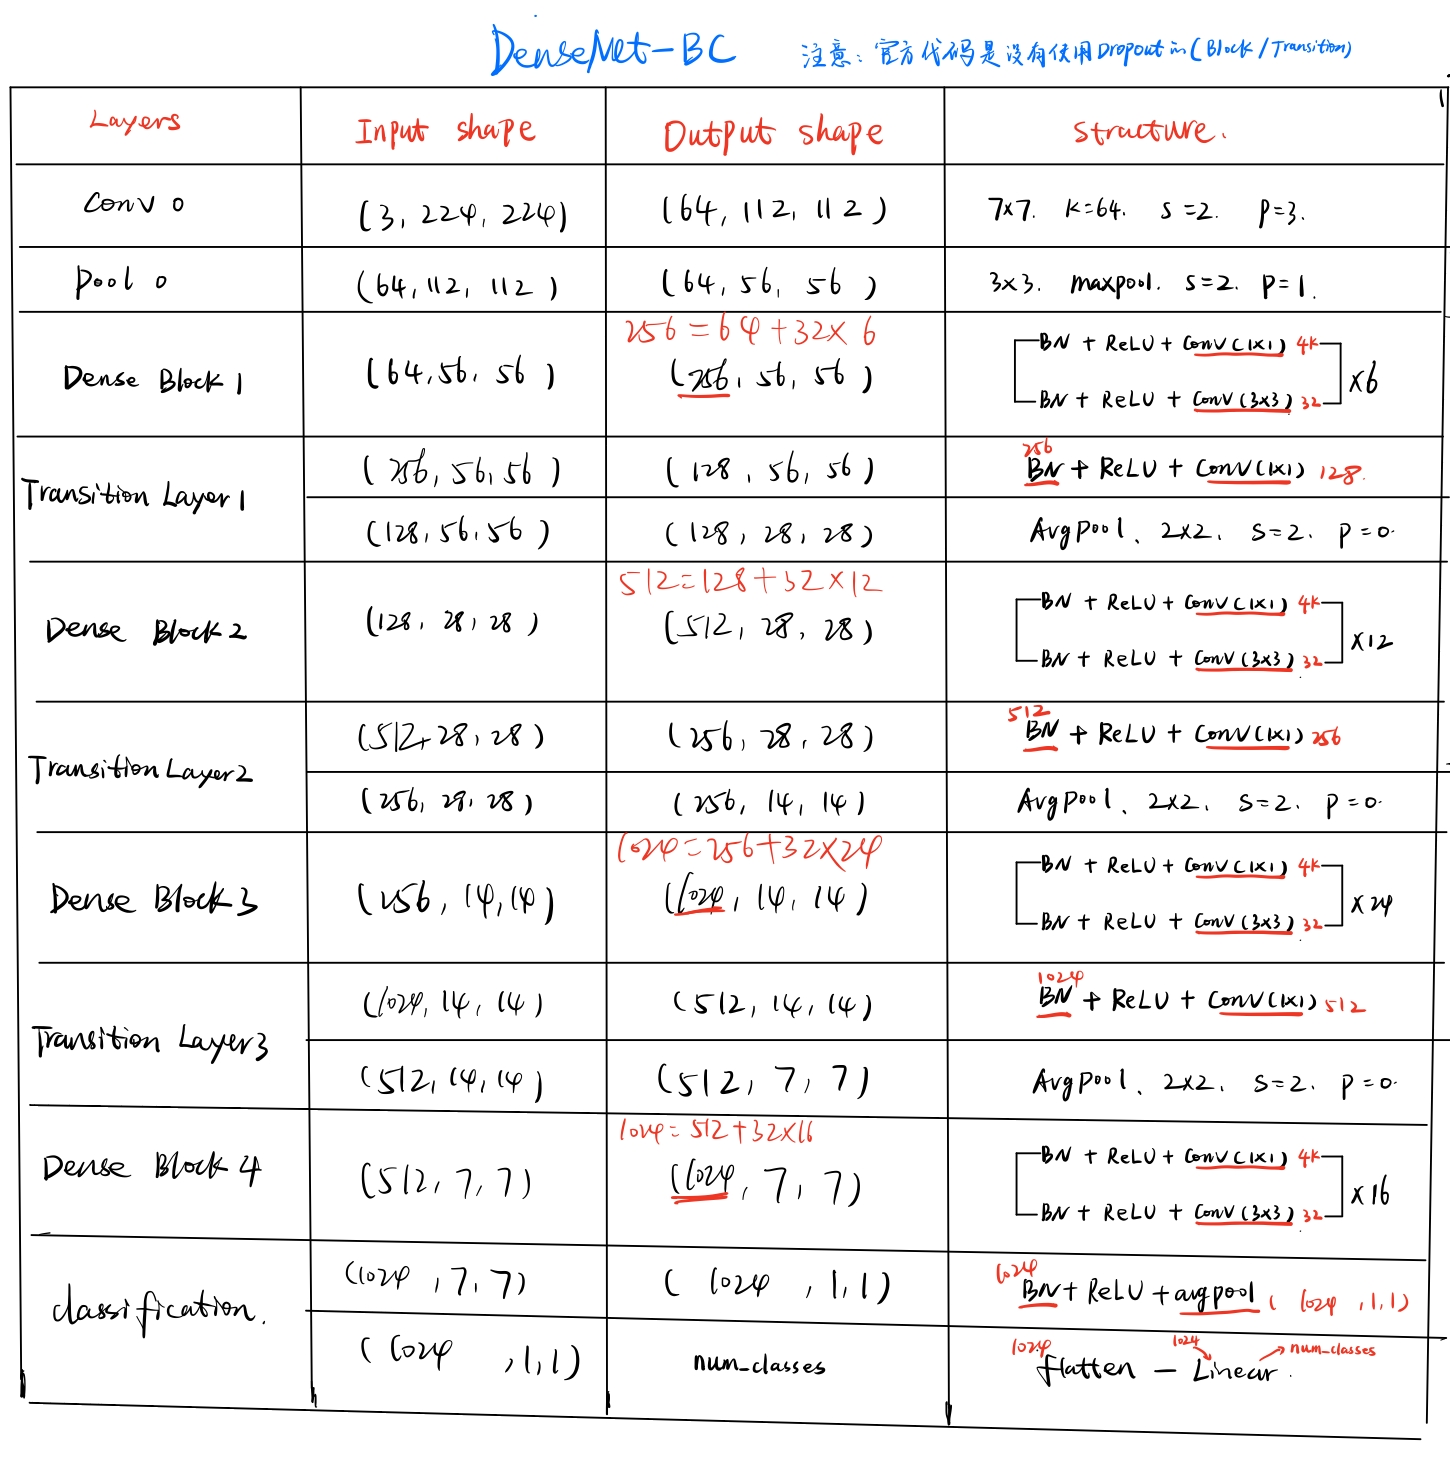 DenseNet-BC 注意：官方代码是没有使用Dropout in (Block/Transition)
Layers Input shape Output shape structure.
Conv 0 (3, 224, 224) (64, 112, 112) 7×7. k=64. s=2. p=3.
Pool 0 (64, 112, 112) (64, 56, 56) 3×3. maxpool. s=2. p=1.
256=64+32×6
Dense Block 1 (64, 56, 56) (256, 56, 56)
BN + ReLU + Conv(1×1) 4k
BN + ReLU + Conv(3×3) 32
×6
Transition Layer 1
256
(256, 56, 56) (128, 56, 56) BN + ReLU + Conv(1×1) 128.
(128, 56, 56) (128, 28, 28) Avgpool. 2×2. s=2. p=0.
512=128+32×12
Dense Block 2 (128, 28, 28) (512, 28, 28)
BN + ReLU + Conv(1×1) 4k
BN + ReLU + Conv(3×3) 32
×12
Transition Layer 2
512
(512, 28, 28) (256, 28, 28) BN + ReLU + Conv(1×1) 256
(256, 28, 28) (256, 14, 14) Avgpool. 2×2. s=2. p=0.
1024=256+32×24
Dense Block 3 (256, 14, 14) (1024, 14, 14)
BN + ReLU + Conv(1×1) 4k
BN + ReLU + Conv(3×3) 32
×24
Transition Layer 3
1024
(1024, 14, 14) (512, 14, 14) BN + ReLU + Conv(1×1) 512
(512, 14, 14) (512, 7, 7) Avgpool. 2×2. s=2. p=0.
1024=512+32×16
Dense Block 4 (512, 7, 7) (1024, 7, 7)
BN + ReLU + Conv(1×1) 4k
BN + ReLU + Conv(3×3) 32
×16
classification.
1024
(1024, 7, 7) (1024, 1, 1) BN + ReLU + avgpool (1024, 1, 1)
1024 1024 num_classes
(1024, 1, 1) num_classes flatten — Linear.